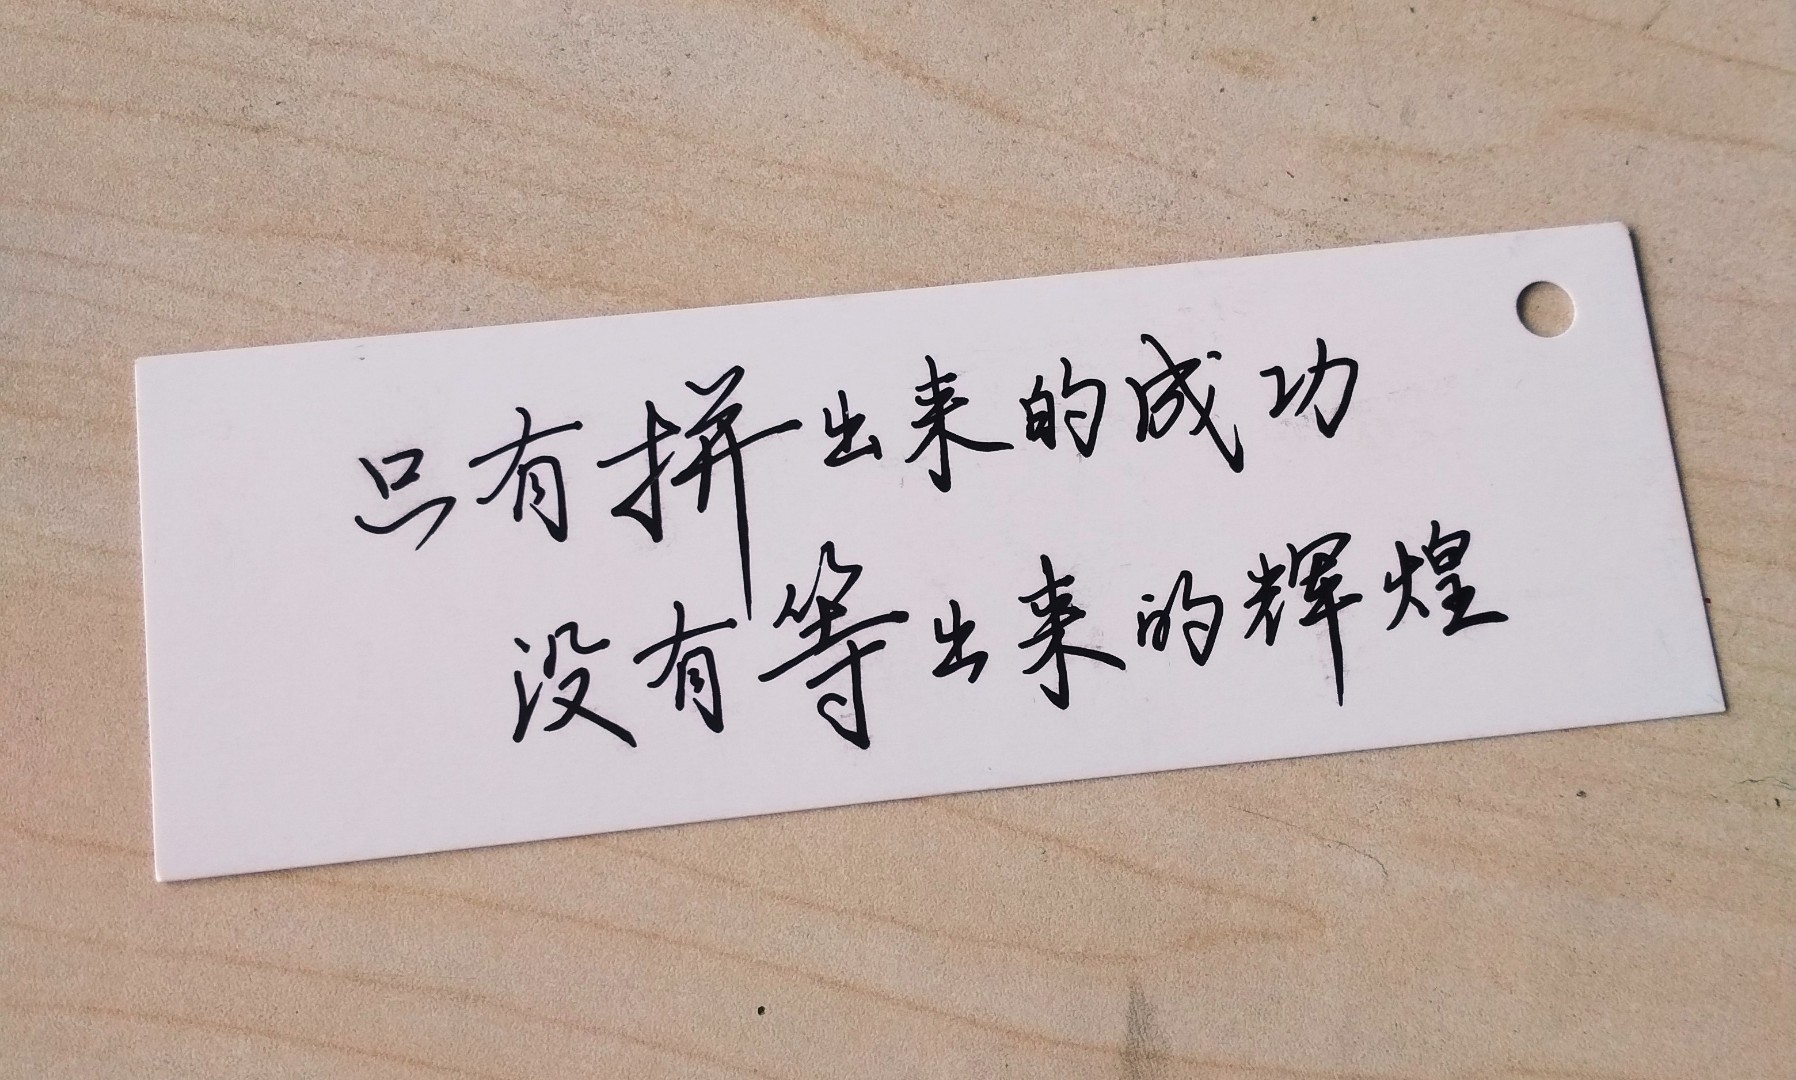 只有拼出来的成功
没有等出来的辉煌